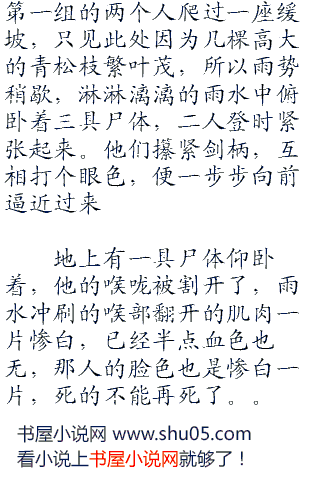 第一组的两个人爬过一座缓
坡，只见此处因为几棵高大
的青松枝繁叶茂，所以雨势
稍歇，淋淋漓漓的雨水中俯
卧着三具尸体，二人登时紧
张起来。他们攥紧剑柄，互
相打个眼色，便一步步向前
逼近过来
地上有一具尸体仰卧
着，他的喉咙被割开了，雨
水冲刷的喉部翻开的肌肉一
片惨白，已经半点血色也
无，那人的脸色也是惨白一
片，死的不能再死了。。
书屋小说网 www.shu05.com
看小说上书屋小说网就够了！